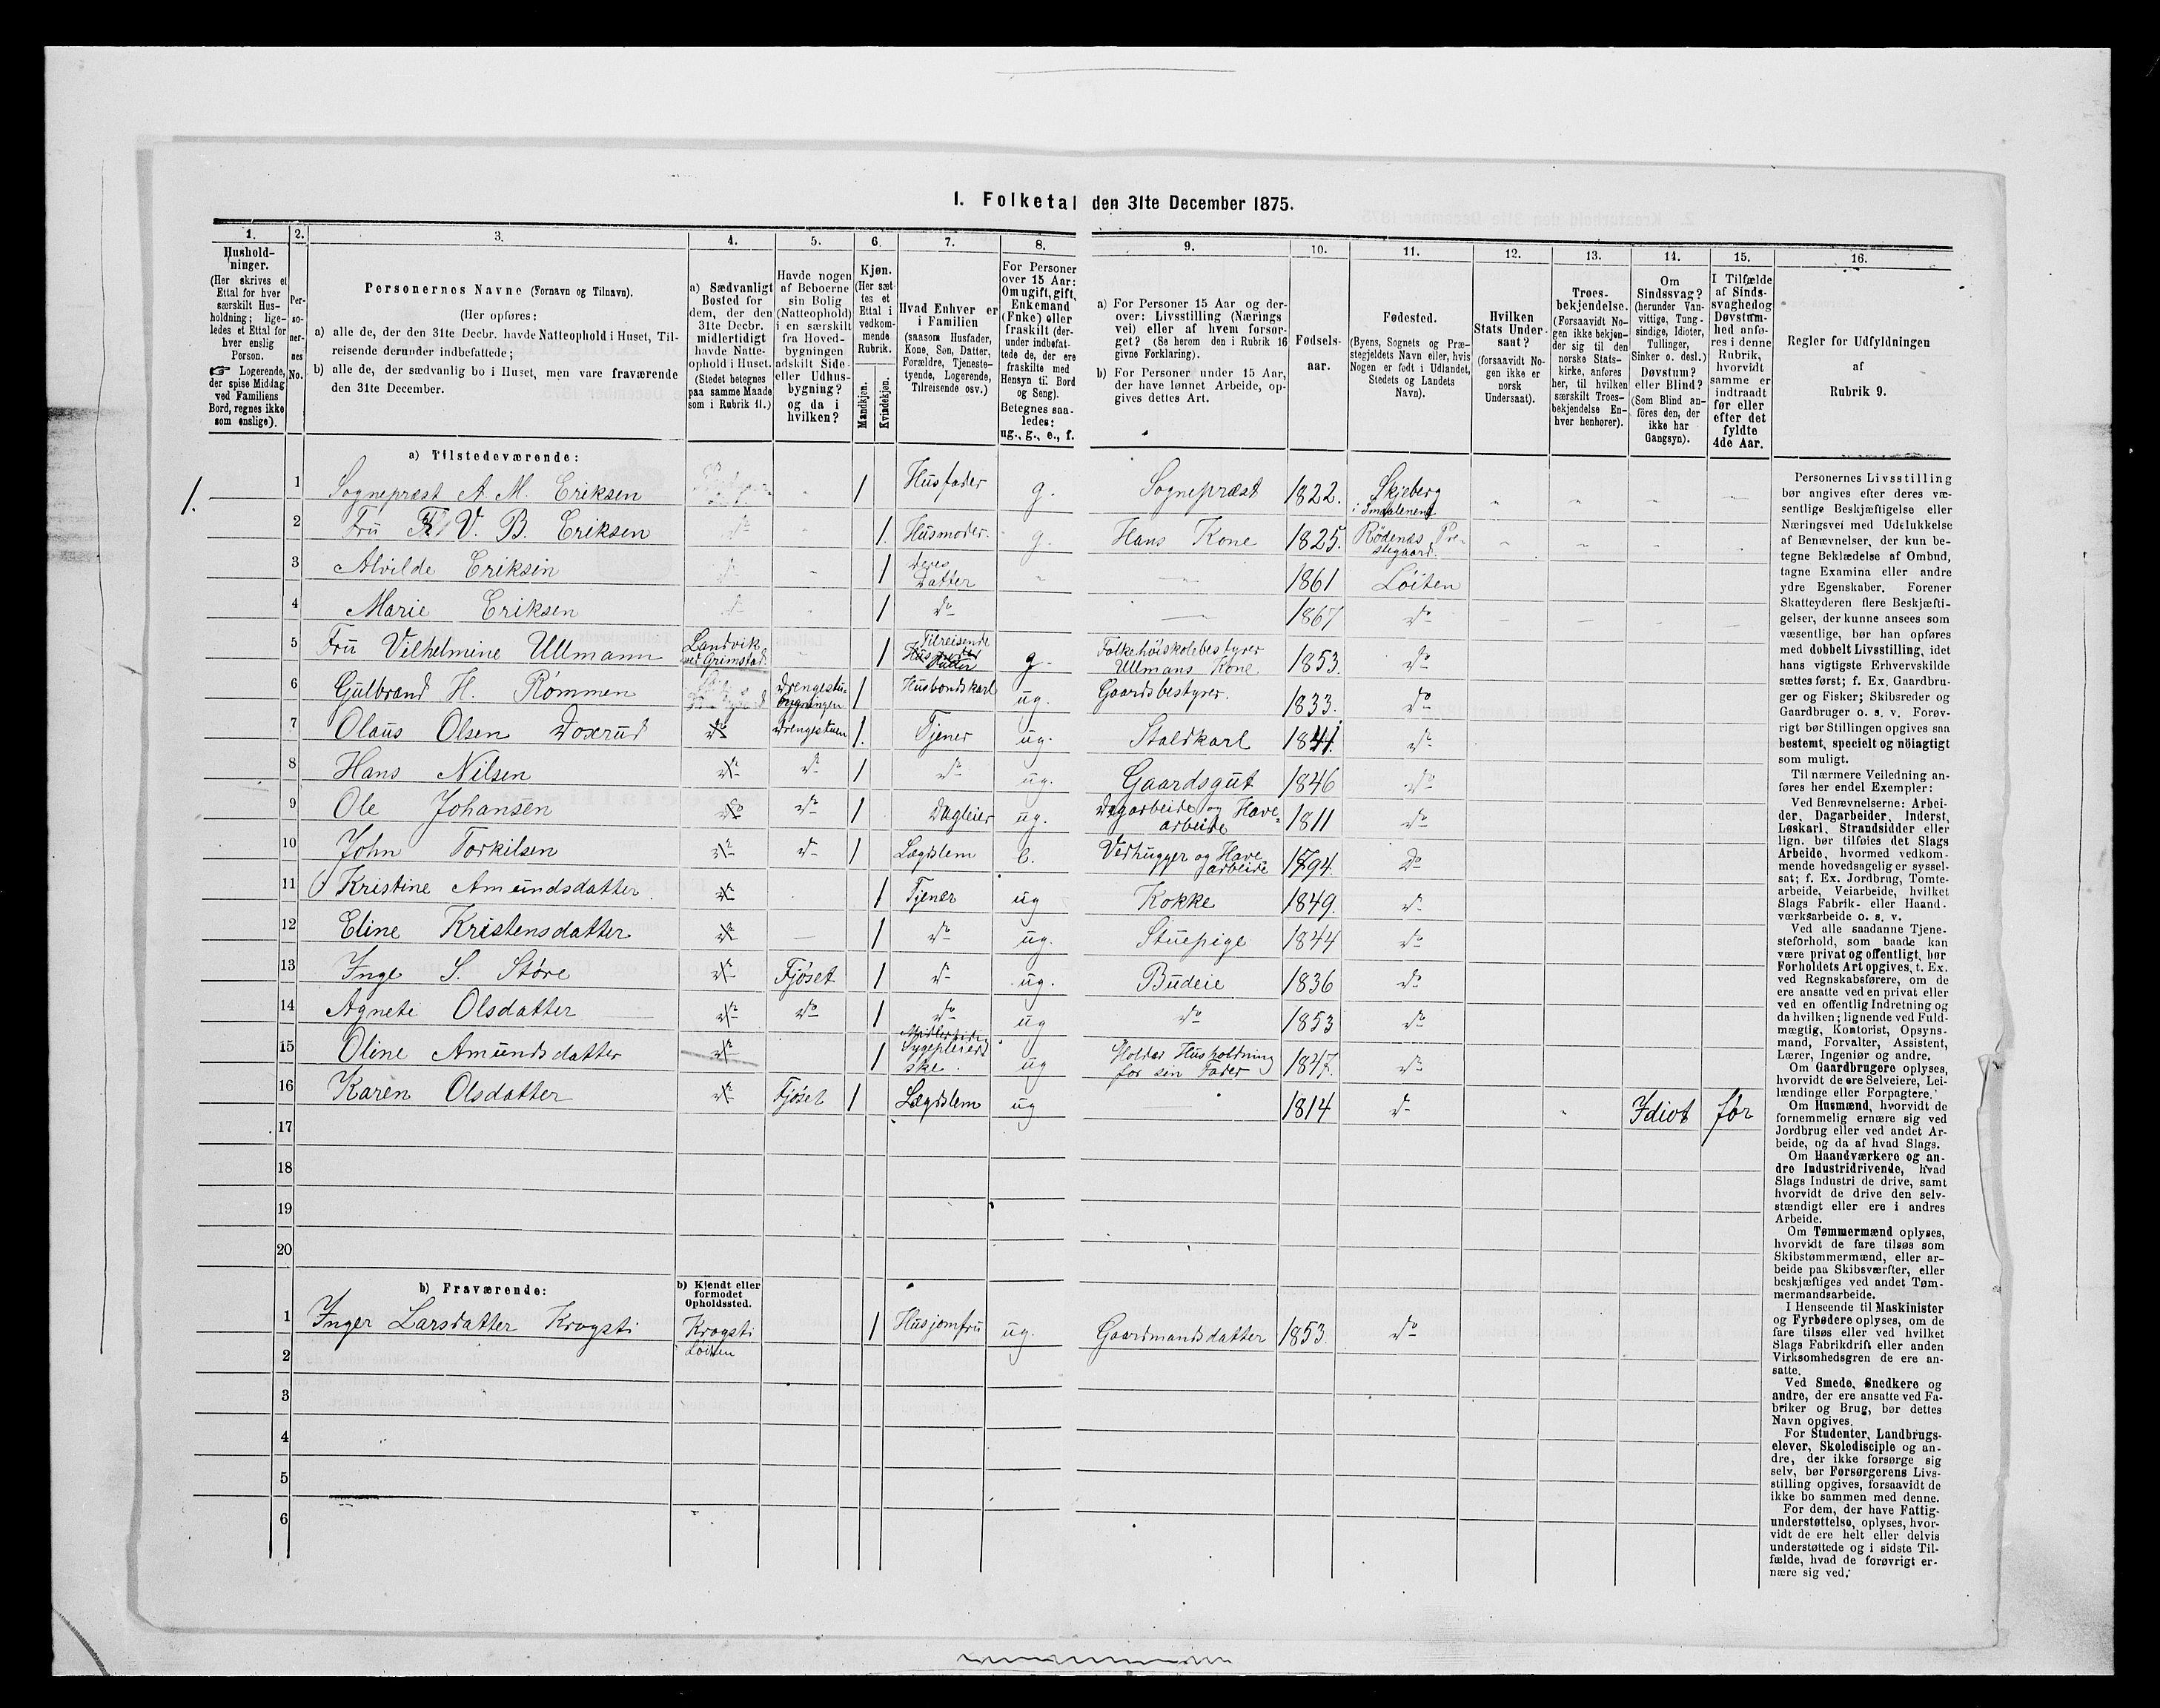 I. Folketal den 31te December 1875.
1. 2. 3. 4. 5. 6. 7. 8. 9. 10. 11. 12. 13. 14. 15. 16.
Hushold-
ninger.
(Her skrives et
Ettal for hver
særskilt Hus-
holdning; lige-
ledes et Ettal for
hver enslig
Person.
☞ Logerende,
der spise Middag
ved Familiens
Bord, regnes ikke
som enslige).
Per-
so-
ner-
nes
No.
Personernes Navne (Fornavn og Tilnavn).
(Her opføres:
a) alle de, der den 31te Decbr. havde Natteophold i Huset, Til-
reisende derunder indbefattede;
b) alle de, der sædvanlig bo i Huset, men vare fraværende
den 31te December.
a) Sædvanligt
Bosted for
dem, der den
31te Decbr.
midlertidigt
havde Natte-
ophold i Huset.
(Stedet betegnes
paa samme Maade
som i Rubrik 11.)
Havde nogen
af Beboerne
sin Bolig
(Natteophold)
i en særskilt
fra Hoved-
bygningen
adskilt Side-
eller Udhus-
bygning?
og da i
hvilken?
Kjøn.
(Her sæt-
tes et
Ettal i
vedkom-
mende
Rubrik.
Mandkjøn.
Kvindekjøn.
Hvad Enhver er
i Familien
(saasom Husfader,
Kone, Søn, Datter,
Forældre, Tjeneste-
tyende, Logerende,
Tilreisende osv.)
For Personer
over 15 Aar:
Om ugift, gift,
Enkemand
(Enke) eller
fraskilt (der-
under indbefat-
tede de, der ere
fraskilte med
Hensyn til Bord
og Seng).
Betegnes saa-
ledes:
ug., g., e., f.
a) For Personer 15 Aar og der-
over: Livsstilling (Nærings
vei) eller af hvem forsør-
get? (Se herom den i Rubrik 16
givne Forklaring).
b) For Personer under 15 Aar,
der have lønnet Arbeide, op-
gives dettes Art.
Fødsels-
aar.
Fødested.
(Byens, Sognets og Præ-
stegjeldets Navn eller, hvis
Nogen er født i Udlandet,
Stedets og Landets
Navn).
Hvilken
Stats Under-
saat?
(forsaavidt No-
gen ikke er
norsk
Undersaat).
Troes-
bekjendelse.
(Forsaavidt No-
gen ikke bekjen-
der sig til den
norske Stats-
kirke, anføres
her, til hvilken
særskilt Troes-
bekjendelse En-
hver henhører).
Om
Sindssvag?
(herunder Van-
vittige, Tung-
sindige, Idioter,
Tullinger,
Sinker o. desl.)
Døvstum?
eller Blind?
(Som Blind an-
føres den, der
ikke har
Gangsyn).
I Tilfælde
af Sinds-
svaghed og
Døvstum-
hed anfø-
res i denne
Rubrik,
hvorvidt
samme er
indtraadt
før eller
efter det
fyldte
4de Aar.
Regler for Udfyldningen
af
Rubrik 9.
a) Tilstedeværende:
1. 1 Sognepræst A. M. Eriksen 1 Husfader g. Sognepræst 1822. Skjeberg i Smaalenene
2 Fru V. B. Eriksen 1. Husmoder. g. Hans Kone 1825. Rödenæs Præstegaard.
3 Alvilde Eriksen 1 deres Datter 1861 Löiten
4 Marie Eriksen 1 do 1867 do
5 Fru Vilhelmine Ullmann Landvik ved Grimstad. 1 Tilreisende Datter g. Folkehöiskolebestyrer Ullmans Kone. 1853. do
6 Gulbrand H. Rømmen Drengestubygningen 1 Husbondskarl ug. Gaardsbestyrer. 1833. do
7 Olaus Olsen Doxrud do Drengestuen 1. Tjener ug. Staldkarl 1841. do
8 Hans Nilsen do do 1 do ug. Gaardsgut 1846 do
9 Ole Johansen do do 1 Dagleier ug. Dagarbeide og Havearbeide 1811 do
10 John Torkilsen do do 1 Lægdslem e. Vedhugger og Havearbeide 1794. Do
11 Kristine Amundsdatter do 1 Tjener ug Kokke 1849. do
12 Eline Kristensdatter do 1 do ug. Stuepige 1844 do
13 Inge S. Støre do Fjøset 1 do ug. Budeie 1836 do
14 Agnete Olsdatter do do 1 do ug do 1853 do
15 Oline Amundsdatter do 1 Sygepleierske. ug Holder Husholdning for sin Fader 1847. do
16 Karen Olsdatter do Fjöset 1 Lægdslem ug 1814 do Idiot før
17
18
19
20
b) Fraværende:
b) Kjendt eller
formodet
Opholdssted.
1 Inger Larsdatter Krogsti Krogsti Löiten 1 Husjomfru ug. Gaardmandsdatter 1853. do
2
3
4
5
6
Personernes Livsstilling
bør angives efter deres væ-
sentlige Beskjæftigelse eller
Næringsvei med Udelukkelse
af Benævnelser, der kun be-
tegne Beklædelse af Ombud,
tagne Examina eller andre
ydre Egenskaber. Forener
Skatteyderen flere Beskjæfti-
gelser, der kunne ansees som
væsentlige, bør han opføres
med dobbelt Livsstilling, idet
hans vigtigste Erhvervskilde
sættes først; f. Ex. Gaardbru-
ger og Fisker; Skibsreder og
Gaardbruger o. s. v. Forøv-
rigt bør Stillingen opgives saa
bestemt, specielt og nöiagtigt
som muligt.
Til nærmere Veiledning an-
føres her endel Exempler:
Ved Benævnelserne: Arbei-
der, Dagarbeider, Inderst,
Løskarl, Strandsidder eller
lign. bør tilföies det Slags
Arbeide, hvormed vedkom-
mende hovedsagelig er syssel-
sat; f. Ex. Jordbrug, Tomte-
arbeide, Veiarbeide, hvilket
Slags Fabrik- eller Haand-
værksarbeide o. s. v.
Ved alle saadanne Tjene-
steforhold, som baade kan
være privat og offentligt, bør
Forholdets Art opgives, t. Ex.
ved Regnskabsførere, om de
ere ansatte ved en privat eller
ved en offentlig Indretning og
da hvilken; lignende ved Fuld-
mægtig, Kontorist, Opsyns-
mand, Forvalter, Assistent,
Lærer, Ingeniør og andre.
Om Gaardbrugere oplyses,
hvorvidt de ere Selveiere, Lei-
lændinge eller Forpagtere.
Om Husmænd, hvorvidt de
fornemmelig ernære sig ved
Jordbrug eller ved andet Ar-
beide, og da af hvad Slags.
Om Haandværkere og an-
dre Industridrivende, hvad
Slags Industri de drive, samt
hvorvidt de drive den selv-
stændigt eller ere i andres
Arbeide.
Om Tømmermænd oplyses,
hvorvidt de fare tilsøs som
Skibstømmermænd, eller ar-
beide paa Skibsværfter, eller
beskjæftiges ved andet Tøm-
mermandsarbeide.
I Henseende til Maskinister
og Fyrbødere oplyses, om de
fare tilsøs eller ved hvilket
Slags Fabrikdrift eller anden
Virksomhedsgren de ere an-
satte.
Ved Smede, Snedkere og
andre, der ere ansatte ved Fa-
briker og Brug, bør dettes
Navn opgives.
For Studenter, Landbrugs-
elever, Skoledisciple og an-
dre, der ikke forsørge sig
selv, bør Forsørgerens Livs-
stilling opgives, forsaavidt de
ikke bo sammen med denne.
For dem, der have Fattig-
understøttelse, oplyses, hvor-
vidt de ere helt eller delvis
understøttede og i sidste Til-
fælde, hvad de forøvrigt er-
nære sig ved.